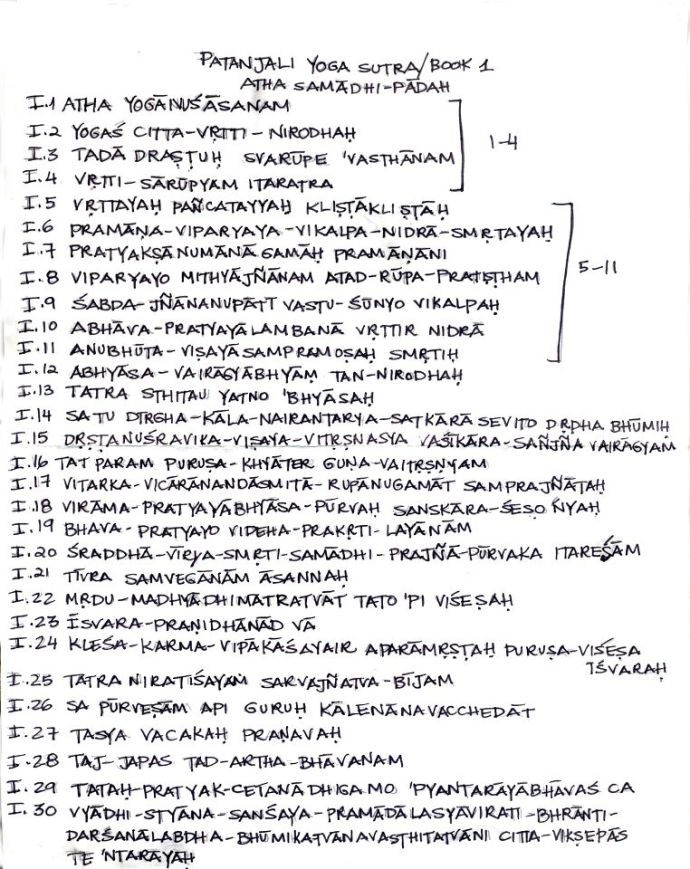 PATANJALI YOGA SUTRA/BOOK 1
ATHA SAMĀDHI-PĀDAḤ
I.1 ATHA YOGĀNUŚĀSANAM
I.2 YOGAŚ CITTA-VṚTTI-NIRODHAḤ
I.3 TADĀ DRAṢṬUḤ SVARŪPE 'VASTHĀNAM
1-4
I.4 VṚTTI-SĀRŪPYAM ITARATRA
I.5 VṚTTAYAḤ PAÑCATAYYAḤ KLIṢṬĀKLIṢṬĀḤ
I.6 PRAMĀṆA-VIPARYAYA-VIKALPA-NIDRĀ-SMṚTAYAḤ
I.7 PRATYAKṢĀNUMĀNĀGAMĀḤ PRAMĀṆĀNI
I.8 VIPARYAYO MITHYĀJÑĀNAM ATAD-RŪPA-PRATIṢṬHAM
5-11
I.9 ŚABDA-JÑĀNANUPĀTĪ VASTU-ŚŪNYO VIKALPAḤ
I.10 ABHĀVA-PRATYAYĀLAMBANĀ VṚTTIR NIDRĀ
I.11 ANUBHŪTA-VIṢAYĀSAMPRAMOṢAḤ SMṚTIḤ
I.12 ABHYĀSA-VAIRĀGYĀBHYĀM TAN-NIRODHAḤ
I.13 TATRA STHITAU YATNO 'BHYĀSAḤ
I.14 SA TU DĪRGHA-KĀLA-NAIRANTARYA-SATKĀRĀ SEVITO DṚDHA BHŪMIḤ
I.15 DṚṢṬANUŚRAVIKA-VIṢAYA-VITṚṢNASYA VAŚĪKĀRA-SAÑJÑA VAIRĀGYAM
I.16 TAT PARAM PURUṢA-KHYĀTER GUṆA-VAITṚṢṆYAM
I.17 VITARKA-VICĀRĀNANDĀSMITĀ-RUPĀNUGAMĀT SAMPRAJÑĀTAḤ
I.18 VIRĀMA-PRATYAYĀBHYĀSA-PŪRVAḤ SANSKĀRA-ŚEṢO 'NYAḤ
I.19 BHAVA-PRATYAYO VIDEHA-PRAKṚTI-LAYĀNĀM
I.20 ŚRADDHĀ-VĪRYA-SMṚTI-SAMĀDHI-PRAJÑĀ-PŪRVAKA ITAREṢĀM
I.21 TĪVRA SAMVEGĀNĀM ĀSANNAḤ
I.22 MṚDU-MADHYĀDHIMĀTRATVĀT TATO 'PI VIŚEṢAḤ
I.23 ĪSVARA-PRAṆIDHĀNĀD VĀ
I.24 KLEŚA-KARMA-VIPĀKĀŚAYAIR APARĀMṚṢṬAḤ PURUṢA-VIŚEṢA
IŚVARAḤ
I.25 TATRA NIRATIŚAYAM SARVAJÑATVA-BĪJAM
I.26 SA PŪRVEṢĀM API GURUḤ KĀLENĀNAVACCHEDĀT
I.27 TASYA VACAKAḤ PRAṆAVAḤ
I.28 TAJ-JAPAS TAD-ARTHA-BHĀVANAM
I.29 TATAḤ-PRATYAK-CETANĀDHIGAMO 'PYANTARĀYĀBHĀVAŚ CA
I.30 VYĀDHI-STYĀNA-SANŚAYA-PRAMĀDĀLASYĀVIRATI-BHRĀNTI-
DARŚANĀLABDHA-BHŪMIKATVĀNAVASTHITATVĀNI CITTA-VIKṢEPĀS
TE 'NTARĀYAḤ